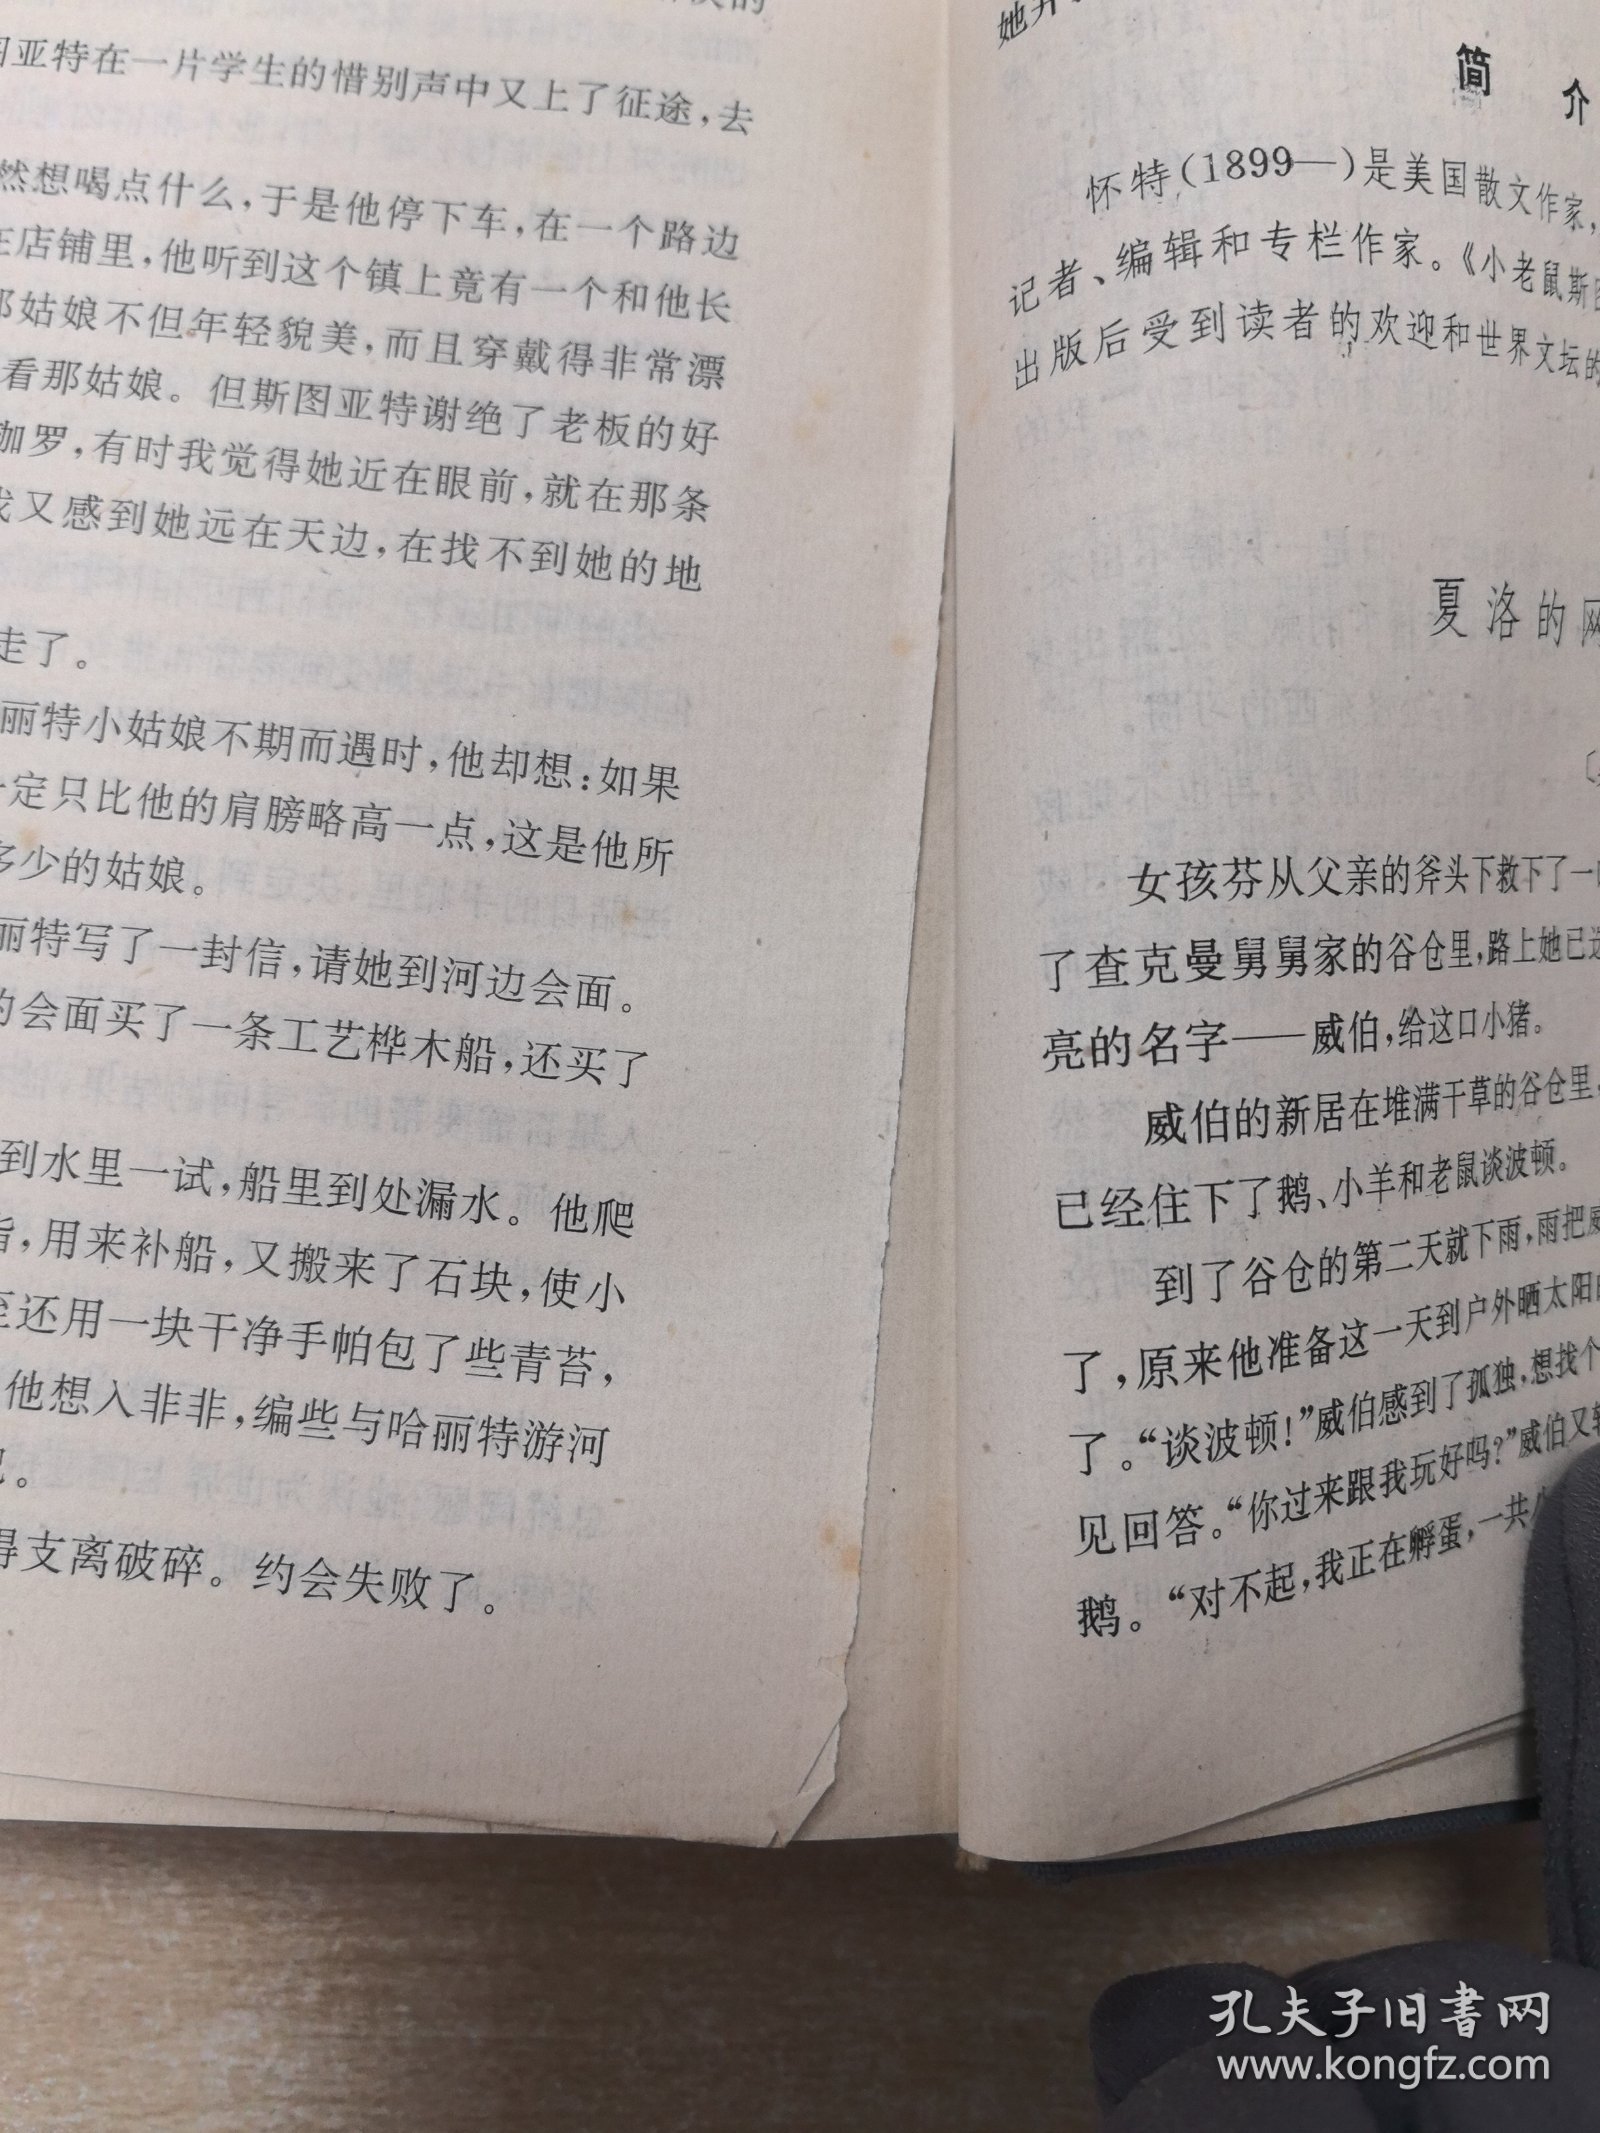 亚特在一片学生的惜别声中又上了征途，去
然想喝点什么，于是他停下车，在一个路边
店铺里，他听到这个镇上竟有一个和他长
那姑娘不但年轻貌美，而且穿戴得非常漂
看那姑娘。但斯图亚特谢绝了老板的好
伽罗，有时我觉得她近在眼前，就在那条
我又感到她远在天边，在找不到她的地
走了。
丽特小姑娘不期而遇时，他却想：如果
定只比他的肩膀略高一点，这是他所
多少的姑娘。
丽特写了一封信，请她到河边会面。
的会面买了一条工艺桦木船，还买了
到水里一试，船里到处漏水。他爬
，用来补船，又搬来了石块，使小
至还用一块干净手帕包了些青苔，
他想入非非，编些与哈丽特游河
。
得支离破碎。约会失败了。
她
简介
怀特(1899—)是美国散文作家，
记者、编辑和专栏作家。《小老鼠斯图
出版后受到读者的欢迎和世界文坛的
夏洛的网
女孩芬从父亲的斧头下救下了一口
了查克曼舅舅家的谷仓里，路上她已
亮的名字——威伯，给这口小猪。
威伯的新居在堆满干草的谷仓里，
已经住下了鹅、小羊和老鼠谈波顿。
到了谷仓的第二天就下雨，雨把威
了，原来他准备这一天到户外晒太阳
了。“谈波顿！”威伯感到了孤独，想找个
见回答。“你过来跟我玩好吗？”威伯又转
鹅。“对不起，我正在孵蛋，一共八
孔夫子旧书网
www.kongfz.com